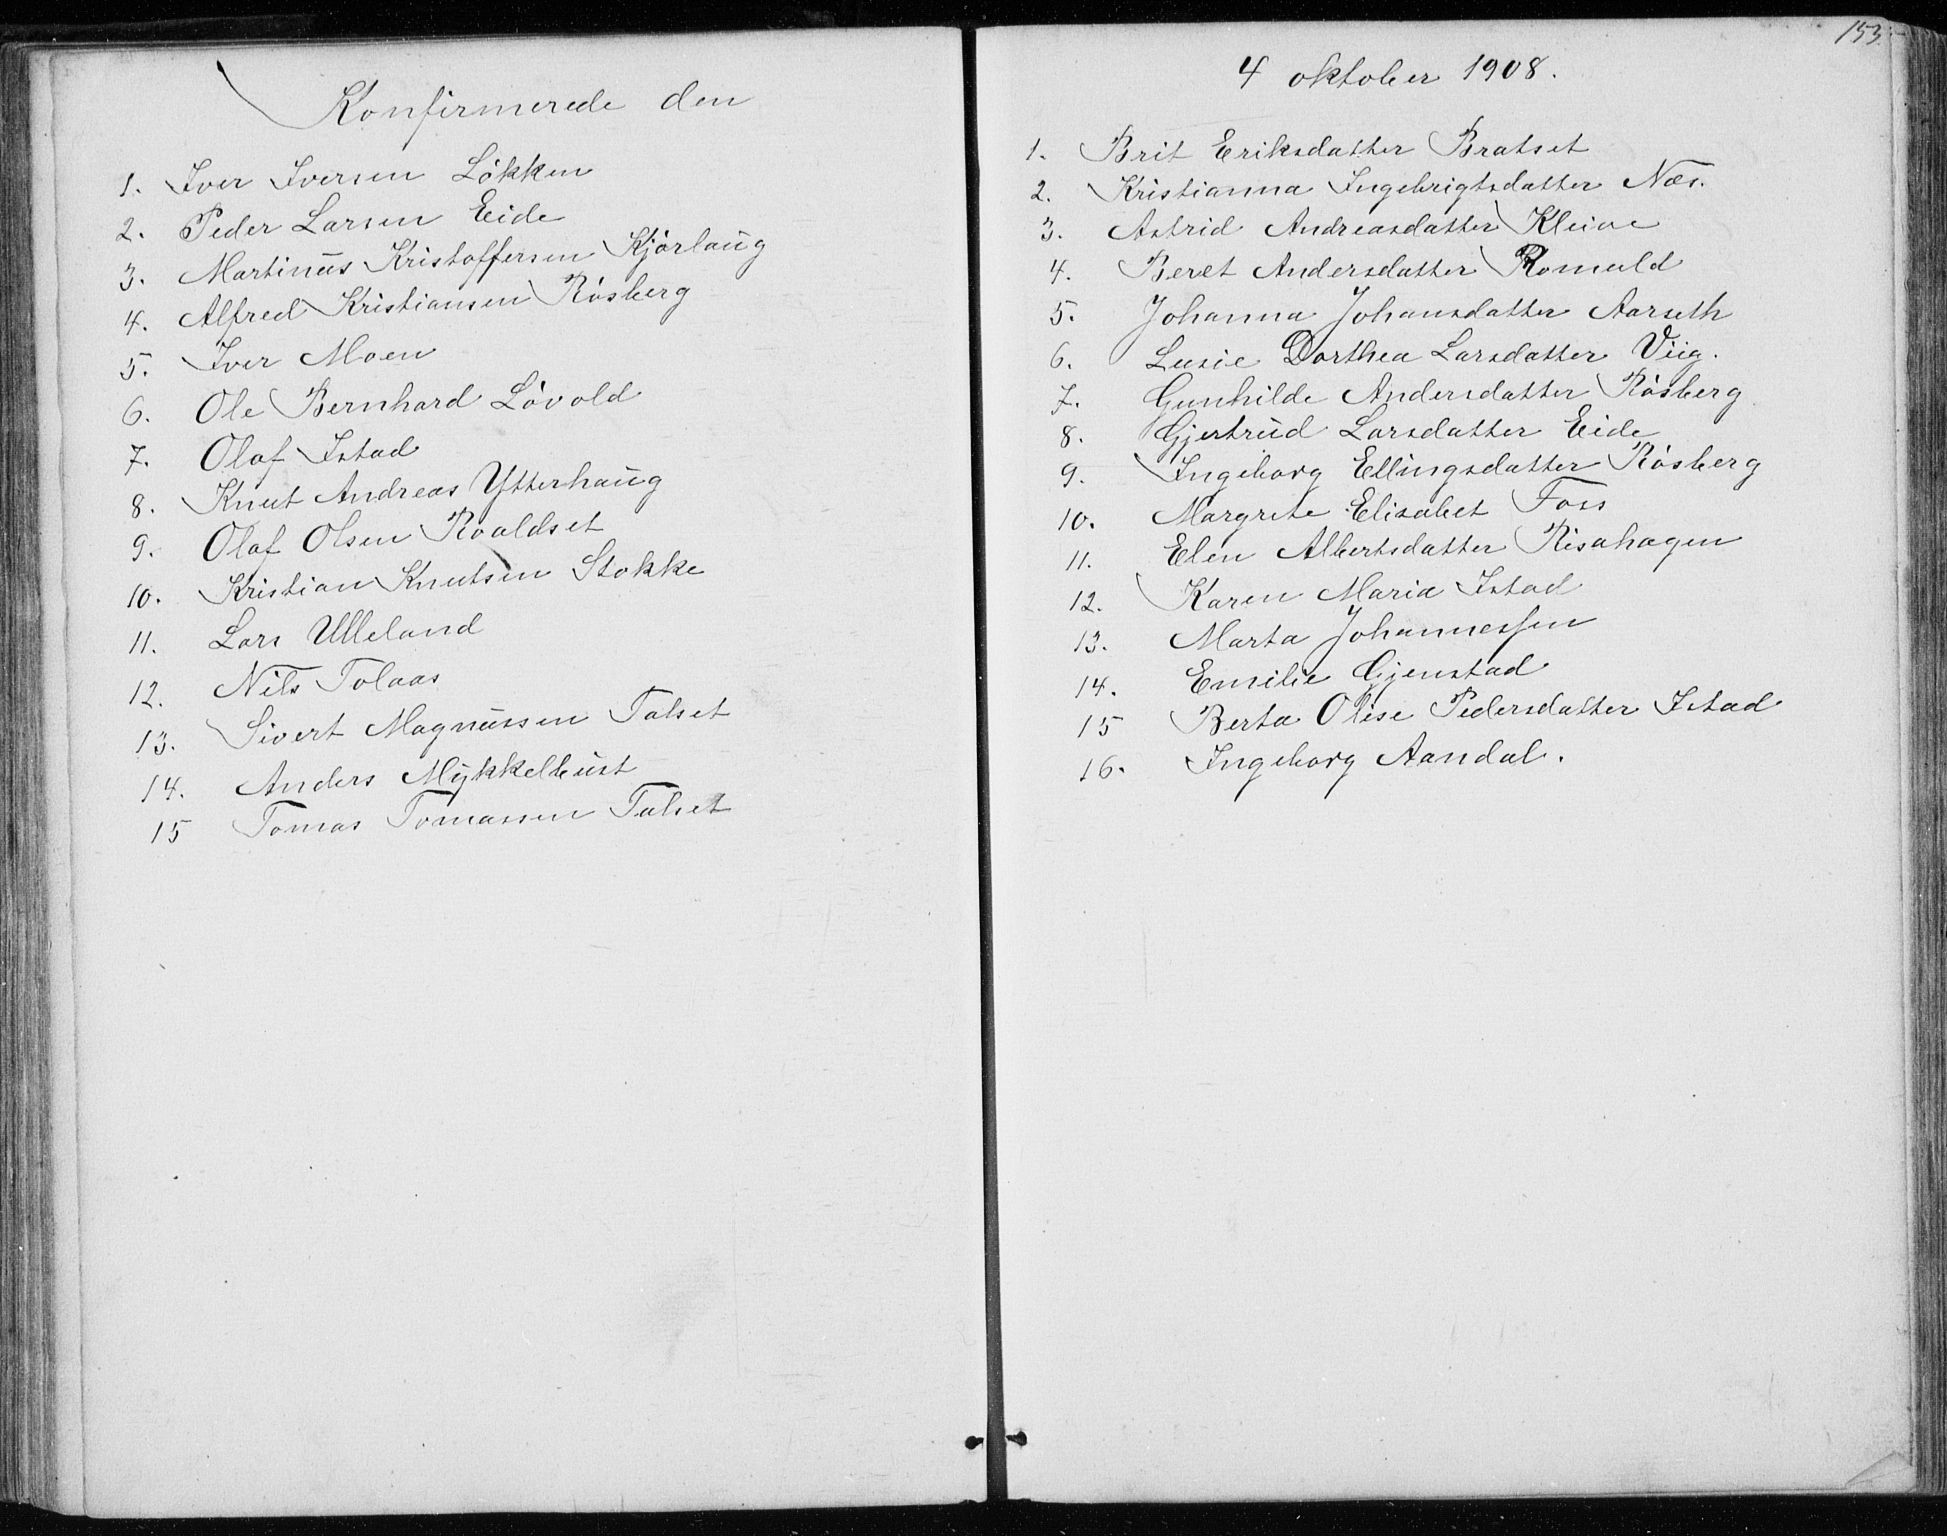 Konfirmerede den
1. Iver Iversen Lökken
2. Peder Larsen Eide
3. Martinus Kristoffersen Kjörlaug
4. Alfred Kristiansen Rösberg
5. Iver Moen
6. Ole Bernhard Lövold
7. Olaf Istad
8. Knut Andreas Ytterhaug
9. Olaf Olsen Roaldset
10. Kristian Knutsen Stokke
11. Lars Ulleland
12. Nils Tolaas
13. Sivert Magnussen Talset
14. Anders Mykkelbust
15 Tomas Tomassen Talset
153
4 oktober 1908.
1. Brit Eriksdatter Bratset
2. Kristianna Ingebrigtsdatter Næs.
3. Astrid Andreasdatter Kleive
4. Beret Andersdatter Romuld
5. Johanna Johansdatter Aarseth
6. Lusie Dorthea Larsdatter Viig.
7. Gunhilde Andersdatter Rösberg
8. Gjertrud Larsdatter Eide
9. Ingeborg Ellingsdatter Rösberg
10. Margrete Elisabet Foss
11. Elen Albertsdatter Risahagen
12. Karen Maria Istad
13. Marta Johannessen
14. Emilie Gjenstad
15 Berta Olise Pedersdatter Istad
16. Ingeborg Aandal.